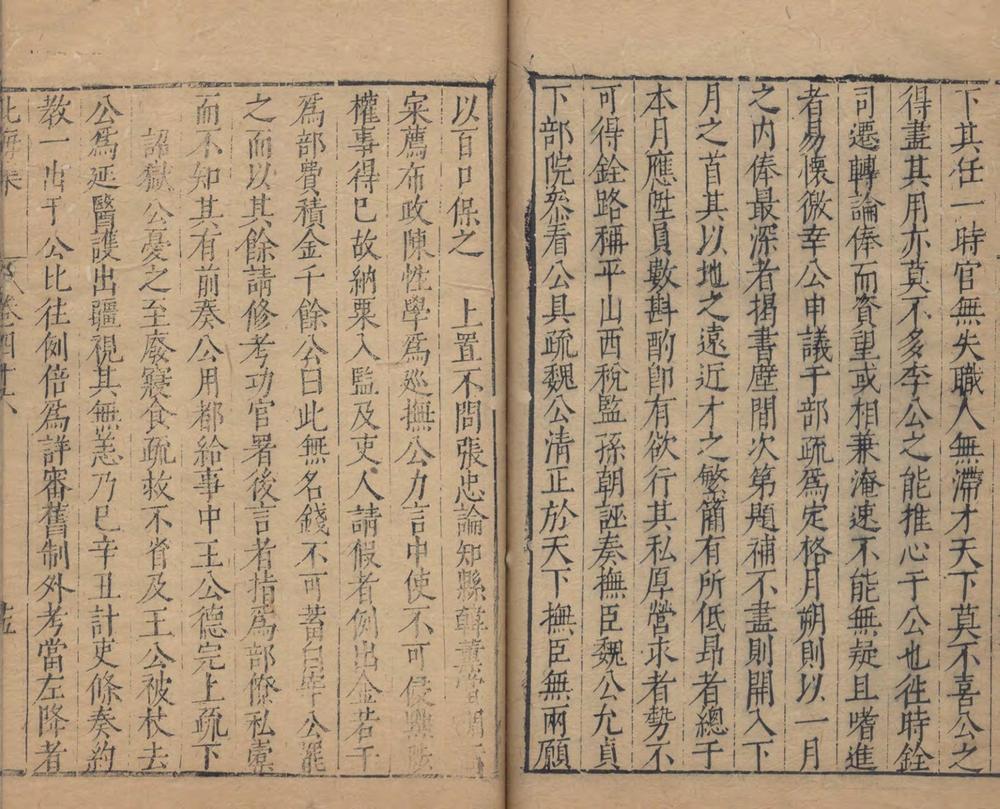 下其任一時官無失職人無滯才天下莫不喜公之
得盡其用亦莫不多李公之能推心于公也徃時銓
司遷轉論俸而資望或相兼淹速不能無疑且嗜進
者易懷徼幸公申議于部疏爲定格月朔則以一月
之内俸最深者揭書壁間次第題補不盡則開入下
月之首其以地之遠近才之繁簡有所低昻者總于
本月應陞員數斟酌卽有欲行其私厚營求者勢不
可得銓路稱平山西稅監孫朝誣奏撫臣魏公允貞
下部院叅看公具疏魏公清正於天下撫臣無兩願
以百口保之 上置不問張忠論知縣韓薰
寀薦布政陳性學爲巡撫公力言中使不可侵
權事得已故納粟入監及吏人請假者例出金若干
爲部費積金千餘公曰此無名錢不可蓄 公罷
之而以其餘請修考功官署後言者指爲部僚私橐
而不知其有前奏公用都給事中王公德完上疏下
詔獄公憂之至廢寢食疏救不省及王公被杖去
公爲延醫護出疆視其無恙乃已辛丑計吏條奏約
教一出于公比往例倍爲詳審舊制外考當左降者
卷四十六